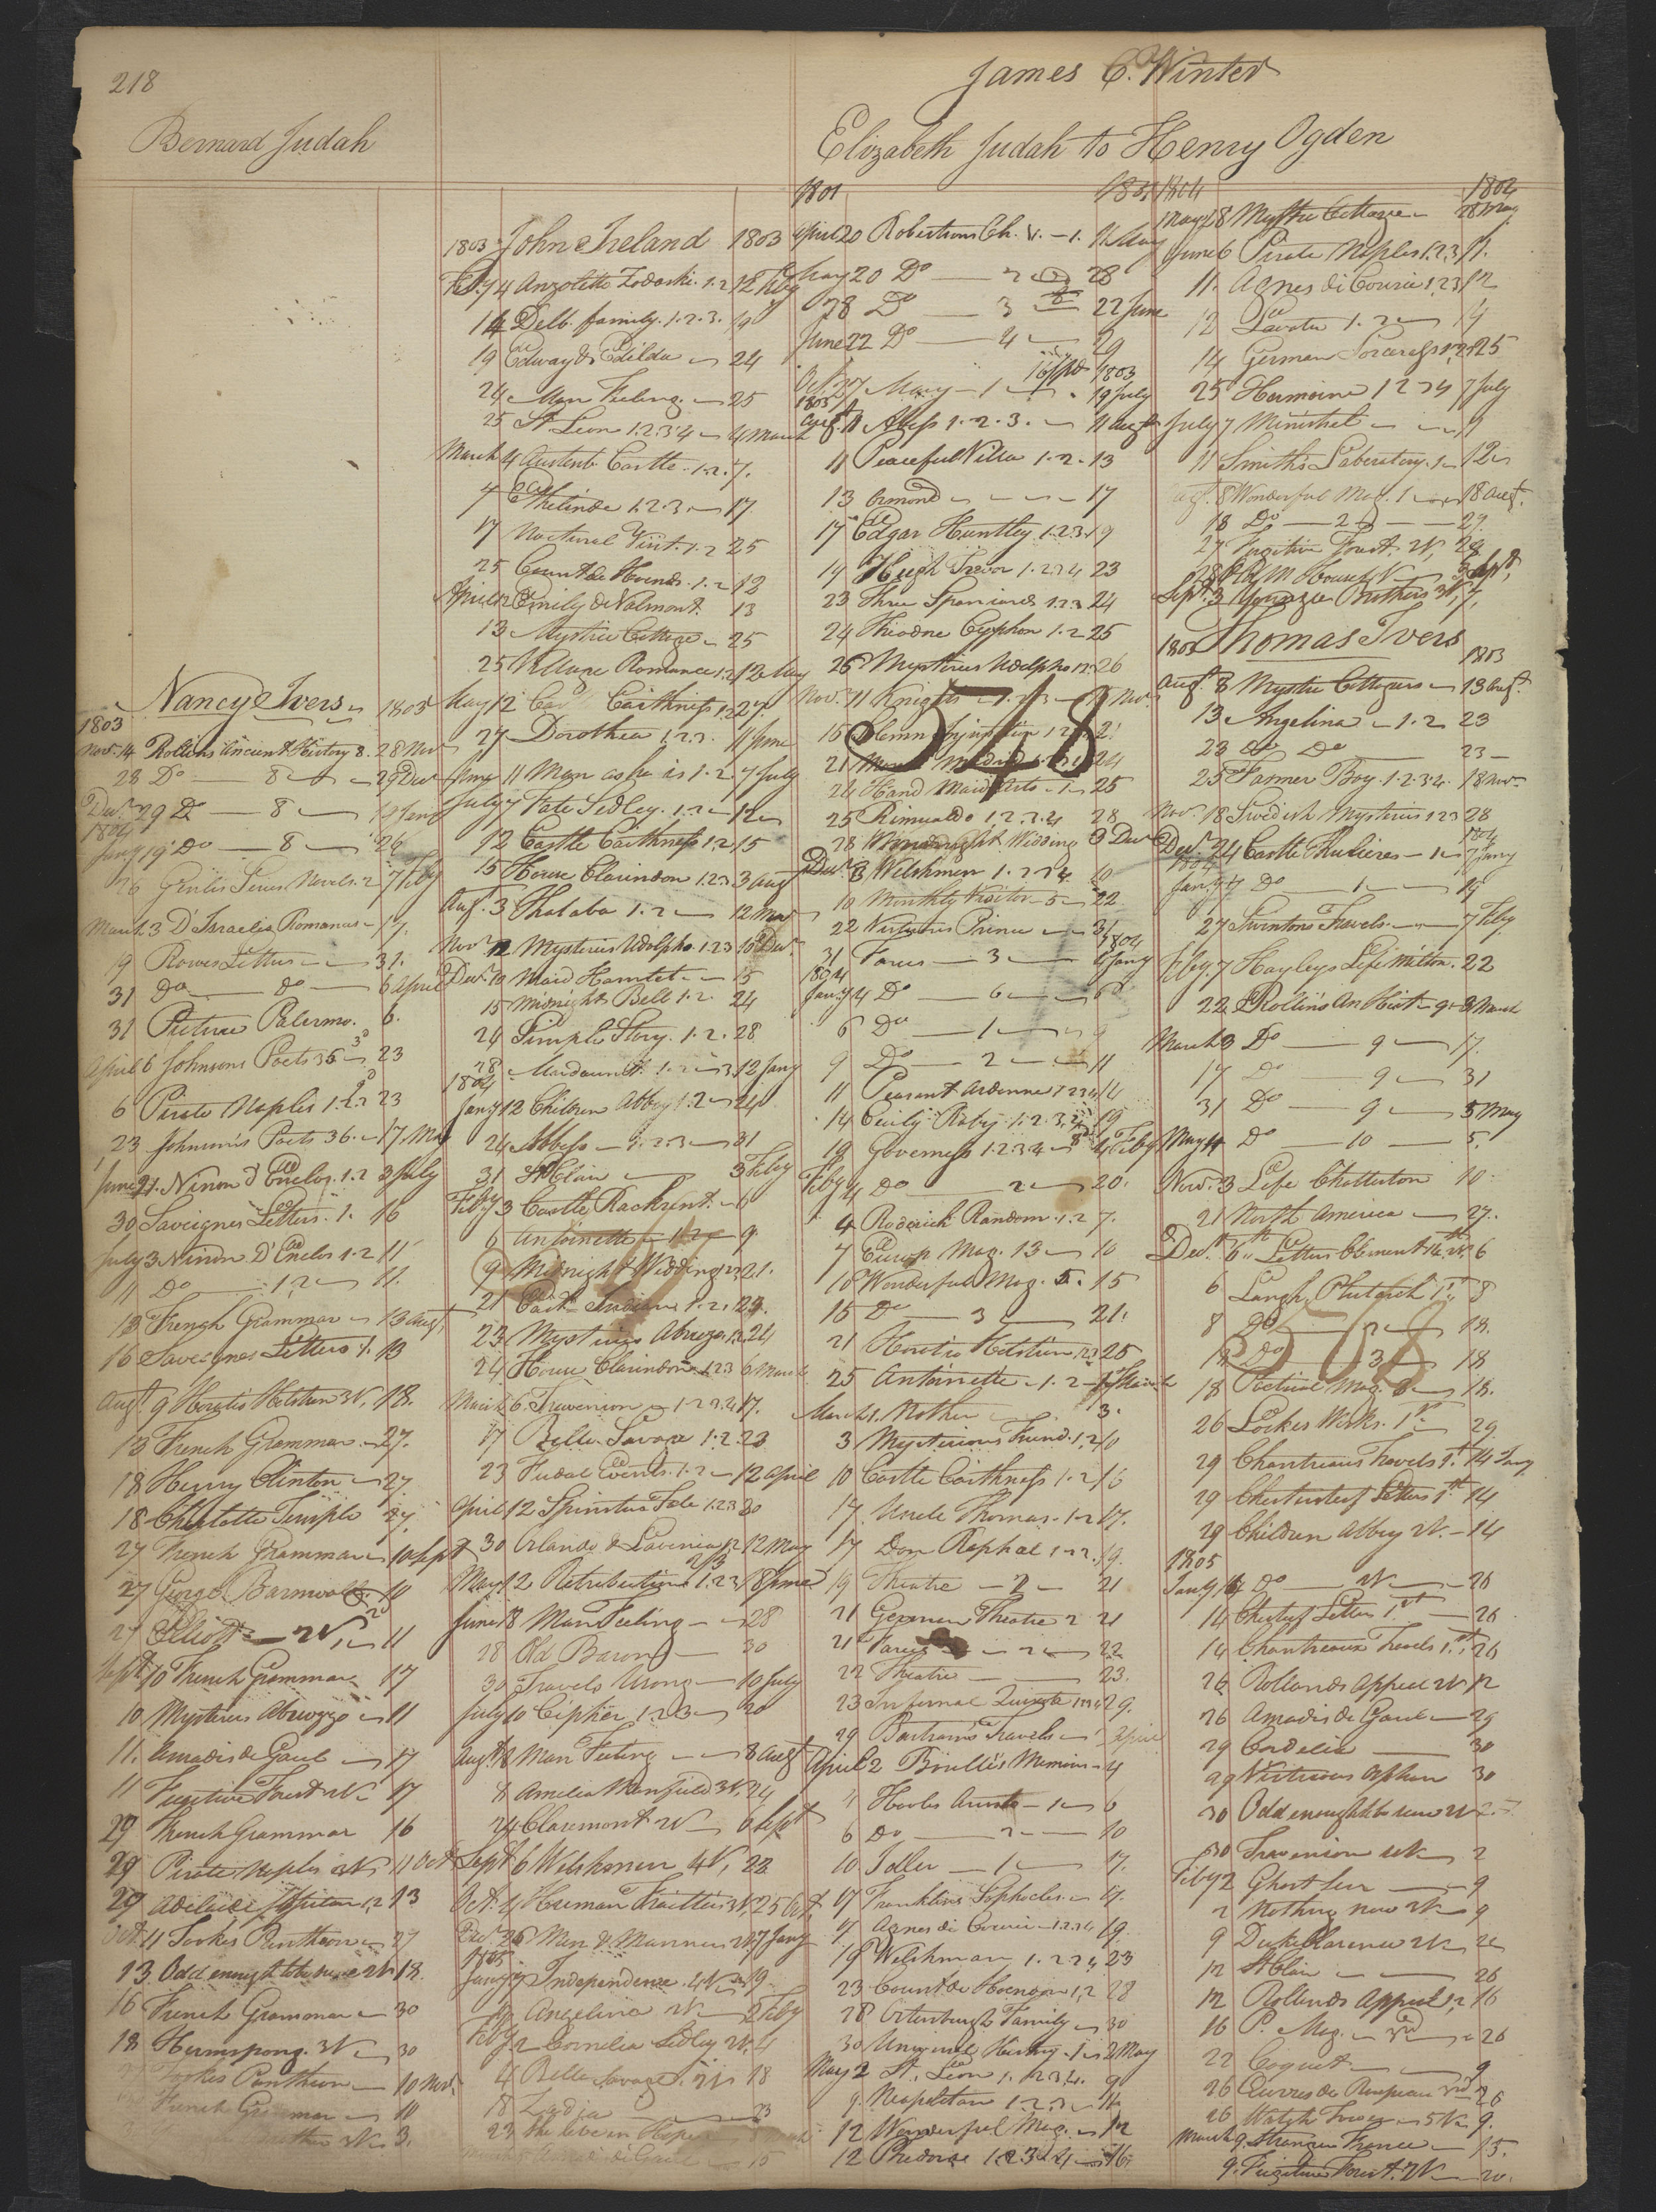 218
James C. Winter
Bernard Judah
Elizabeth Judah to Henry Ogden
Nancy Ivers 1803
1803
Nov. 14 Rollins Ancient History 8. 28 Nov
28 Do 8 29 Decr
Decr. 29 Do 8 19 Jany
1804
Jany 19 Do 8 26
26 Genlis Novels. 2 7 Feby
March 3 D'Israelis Romances 17.
19 Rowes Letters 31.
31 Do do 6 April
31 Picture Palermo. 6.
April 6 Johnsons Poets 36 23
6 Pirate Naples 1.2.3 23
23 Johnsons Poets 36. 17. May
June 21. Ninon d'Enclos. 1.2 3 July
30 Saveignes Letters. 1. 16
July 3 Ninon D'Enclos 1.2 11
11 Do 1.2 11.
13 French Grammar 13 Augt
16 Saveignes Letters 1. 13
Augt 9 Horatio Holstein 3V. 18.
13 French Grammar. 27.
18 Henry Clinton 27.
18 Charlotte Temple 27.
27 French Grammar 10 Sept
27 George Barnwell 10
27 Elliott 2V. 11
Sept 10 French Grammar 17
10 Mysterious Abruzzo 11
11. Amadis de Gaul 17
11 Fugitive Forest 2V. 17
29 French Grammar 16
29 Pirate Naples 3V. 11 Oct
29 Adelaide 1.2 13
Oct 11 Tookes Pantheon 27
13. Odd enough to be sure 2V. 18.
16 French Grammar 30
18 Hermsprong. 3V. 30
Tookes Pantheon 10 Nov.
French Grammar 10
3V. 3.
1803 John Ireland 1803
Feby 4 Anzoletto Zodoski. 1.2 12 Feby
14 Delb. family. 1.2.3. 19
19 Edway & Edilda 24
24 Man Feeling. 25
25 St Leon 1.2.3.4 4 March
March 4 Austenb. Castle. 1.2. 7.
7 Ethelinde 1.2.3. 17
17 Nocturnal Visit. 1.2 25
25 Count de Hoensd. 1.2 12
April 12 Emily de Valmont. 13
13 Mystic Cottage 25
25 Village Romance 1.2 12 May
May 12 Cas Caithness 1.2 27.
27 Dorothea 1.2.3. 11 June
June 11 Man as he is 1.2. 7 July
July 7 Kate Sedley. 1.2 12
12 Castle Caithness 1.2 15
15 House Clarindon 1.2.3 3 Aug
Aug. 3 Thalaba 1.2 12 Nov
Nov 12 Mysteries Udolpho 1.2.3 10 Decr.
Decr. 10 Maid Hamlet 15
15 Midnight Bell 1.2. 24
24 Simple Story. 1.2. 28
28 Mordaunt. 1.2.3. 12 Jany
1804
Jany 12 Children Abbey 1.2 24
24 Abbess 1.2.3 31
31 St Clair 3 Feby
Feby 3 Castle Rackrent. 6
6 Antoinette 1.2 9.
9 Midnight Wedding 1.2 21.
21 East Indian 1.2. 23.
23 Mysterious Abruzzo. 1.2. 24
24 House Clarindon 1.2.3 6 March
March 6. Trevenion 1.2.3.4 17.
17 Belle Savage 1.2. 23
23 Feudal Events. 1.2 12 April
April 12 Spinsters Tale 1.2.3 30
30 Orlando & Lavinia 1.2 12 May
May 12 Retribution 1.2.3 18 June
June 18 Man Feeling 28
28 Old Baron 30
30 Travels Wrong 10 July
July 10 Cipher 1.2.3 20
Augt 2 Man Feeling 8 Augt
8 Amelia Mansfield 3V. 24
24 Claremont 2V. 6 Sept
Sept 6 Welshmen 4V. 22
Oct. 4 Human Frailties 3V. 25 Oct
Decr 26 Men & Manners 4V. 7 Jany
1805
Jany 7 Independence. 4V. 19.
19 Angelina 2V. 2 Feby
Feby 2 Cornelia Sedley 2V. 4
4 Belle Savage. 2V. 18
18 Zadia 23
23 15
1801 1801
April 20 Robertsons Ch. V. 1. 11 May
May 20 Do 2 28
28 Do 3 22 June
June 22 Do 4
Oct. 27 Mary 1 1803
1803 19 July
Augt 11 Alps 1.2.3. 11 Augt
11 Peaceful Villa 1.2. 13
13 Ormond 17
17 Edgar Huntley 1.2.3. 19
19 Hugh Trevor 1.2.3.4 23
23 Three Spaniards 1.2.3 24
24 Theodore Cyphon 1.2 25
26 Mysteries Udolpho 1.2. 26
Nov. 11 Knights 1.2.3 15 Nov
548
16 Solemn Injunction 1.2 21
21 24
24 Hand Maid Arts 1. 25
25 Rimualdo 1.2.3.4 28
28 Midnight Wedding 3 Decr
Decr. 3 Welshmen 1.2.3.4. 10
10 Monthly Visitor 5 22.
22 Virtuous Prince 31
31 Farces 3 4 Jany
1804
Jany 4 Do 6 6
6 Do 1 9
9 Do 2 11
11 Peasant Ardenne 1.2.3.4 14
14 Cecily Raby. 1.2.3.4 19
19 Governess 1.2.3.4 4 Feby
Feby 4 Do 2 20.
4 Roderick Random. 1.2 7.
7 Europ. Mag. 13 10
10 Wonderful Mag. 5. 15
15 Do 3 21.
21 Horatio Holstein 1.2.3 25
25 Antoinette 1.2 1 March
March 1. Mother 3.
3 Mysterious Friend. 1.2 10
10 Castle Caithness 1.2 16
17. Uncle Thomas. 1.2 17.
17 Don Raphael 1.2.3. 19.
19 Theatre 2 21
21 German Theatre 2 21
21 Farces 2 22
22 Theatre 23.
23 Infernal Quixote 1.2.3.4 29.
29 Bartrams Travels 2 April
April 2 Bouilles Memoirs 4
4 1 6
6 Do 2 10
10. Idler 1 17.
17 Franklins Sophocles. 17.
17 Agnes di Courcie 1.2.3.4 19.
19 Welshman 1.2.3.4 23
23 Count de Hoensdern 1.2 28
28 Ortenburgh Family 30
30 Universal History. 1 2 May
May 2 St. Leon 1.2.3.4. 9
9. Neapolitan 1.2.3 12
12 Wonderful Mag. 12
12 Phedora 1.2.3.4 16
1804 1804
May 28 Mystic Cottage 28 May
June 6 Pirate Naples 1.2.3 11.
11. Agnes di Courcie 1.2.3 12
12 Lavater 1.2 14
14 German Sorceress 1.2.3 25
25 Hermione 1.2.3.4 7 July
July 7 Minstrel 11
11 Smiths Laboratory. 1 12
Augt. 8 Wonderful Mag. 1 18 Augt.
18 Do 2 27.
27 Fugitive Forest. 2V. 28
28 Old M House 2V. 3 Sept.
Sept. 3 Younger Brothers 3V. 7.
1803 Thomas Ivers 1803
Augt. 8 Mystic Cottagers 13 Augt.
13 Angelina 1.2 23
23 Do Do 23
25 Farmer Boy. 1.2.3.4. 18 Nov
Nov. 18 Swedish Mysteries 1.2.3 28
Decr. 24 Castle 1 7 Jany
1804
Jany 7 Do 1 19
27 Swintons Travels 7 Feby
Feby. 7 Hayleys Life Milton. 22
22 Rollins An Hist 9 3 March
March 3 Do 9 17.
17 Do 9 31
31 Do 9 5 May
May 4 Do 10 5.
Nov. 3 Life Chatterton 10
21 North America 27.
Decr. 6 Letters Clement 14th 2V. 6
6 Langh. Plutarch 1st 8
8 Do 2 18.
508
18 Do 3 18
18 Poetical Mag. 18.
26 Lockes Works. 1st 29
29 Chantreaus Travels 1st 14 Jany
29 Chesterf Letters 1st 14
29 Children Abbey 2V. 14
1805
Jany 14 Do 2V. 26
14 Chesterf Letters 1st 26
14 Chantreaus Travels 1st 26
26 Rollands Appeal 2V. 12
26 Amadis de Gaul 29
29 Cordelia 30
29 Virtuous Orphan 30
30 Odd enough to be sure 2V 2.
30 Trevenion 4V. 2
Feby 2 Ghost Seer 9
2 Nothing new 3V. 9
9 Duke Clarence 2V. 26
12 St Clair 26
12 Rollands Appeal 1.2 16
16 P. Mag. 3rd 26
22 Coquet 9
26 Œuvres de Rousseau 3rd 26
26 Welsh 5V. 9.
March 9. Stranger France 15.
9. Fugitive Forest. 2V. 20.